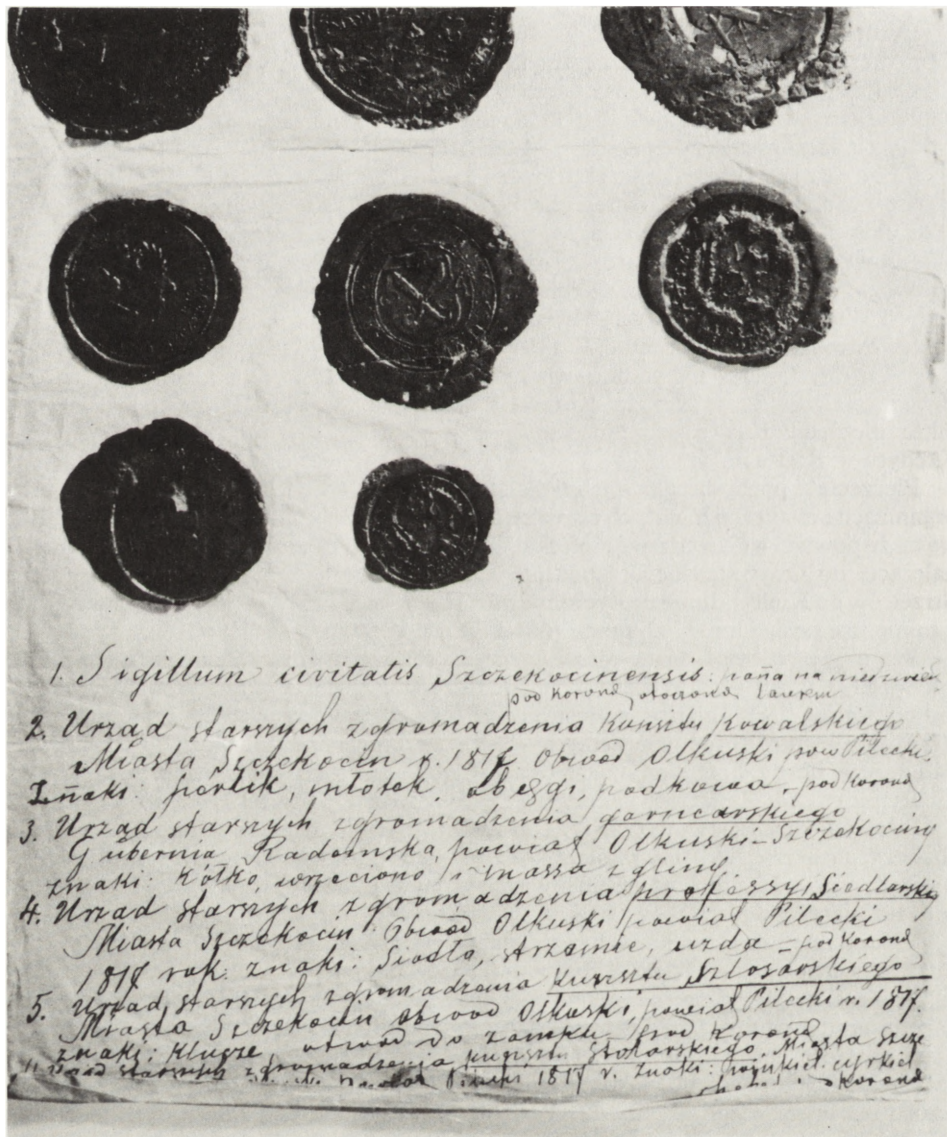 1. Sigillum civitatis Szczekocinensis: panna na niedźwied
pod koroną otoczoną laurem
2. Urząd starszych zgromadzenia Kunsztu Kowalskiego
Miasta Szczekocin r. 1817 Obwód Olkuski pow Pilecki.
Znaki: perlik, młotek, obcęgi, podkowa - pod koroną
3. Urząd starszych zgromadzenia garncarskiego
Gubernia Radomska, powiat Olkuski - Szczekociny
znaki: Kółko, wrzeciono i massa z gliny
4. Urząd starszych zgromadzenia professyi Siodlarskiej
Miasta Szczekocin Obwód Olkuski powiat Pilecki
1817 rok. znaki: Siodło, strzemie, uzda - pod koroną
5. Urząd starszych zgromadzenia Kunsztu Szlosarskiego
Miasta Szczekocin obwód Olkuski, powiat Pilecki r. 1817.
znaki: Klucze, otwód do zamku pod koroną
starszych zgromadzenia kunsztu Stolarskiego Miasta Szcze
Pilecki 1817 r. Znaki: cyrkiel
koroną